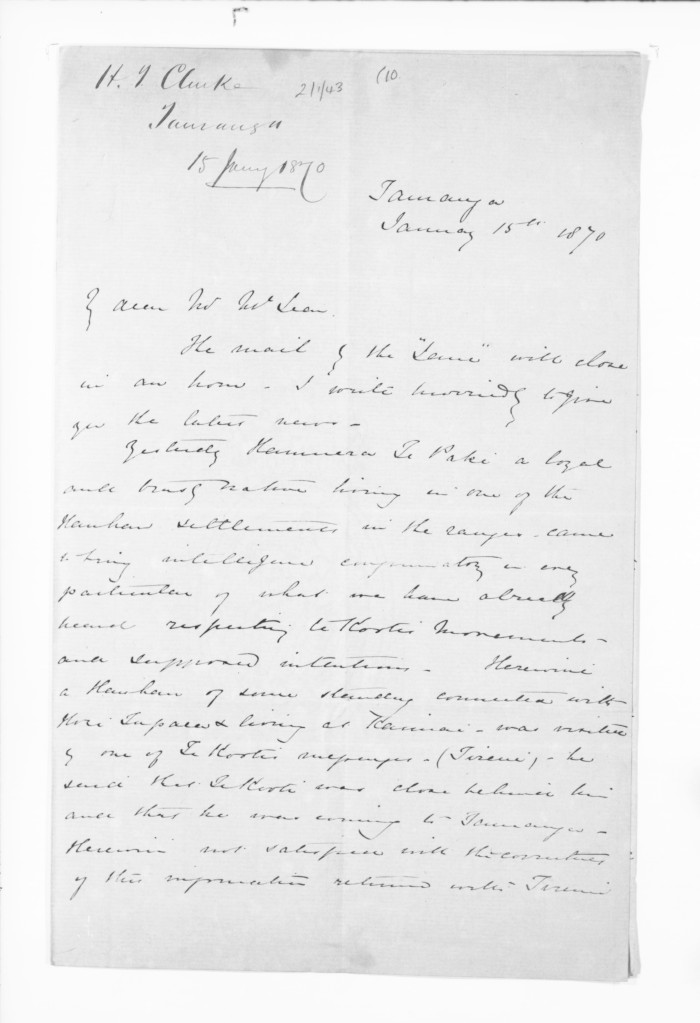 H. T Clarke
21/1/43
(10
Tauranga
15 Jany 1870
Tauranga
January 15th 1870
My dear Mr McLean.
The mail by the "Lame" will close
in an hour - I write hurriedly to give
you the latest news -
Yesterday Hamuera Te Paki a loyal
and trusty Native living in one of the
Hauhau settlements in the ranges - came
to bring intelligence confirmatory in every
particular of what we have already
heard respecting Te Kooti's movements -
and supposed intentions - Herewini
a Hauhau of some standing connected with
Hori Tupaea & living at Kaimai - was visited
by one of Te Kooti's messengers - (Tireni) - he
said that Te Kooti was close behind him
and that he was coming to Tauranga -
Herewini not satisfied with the correctness
of this information returned with Tireni